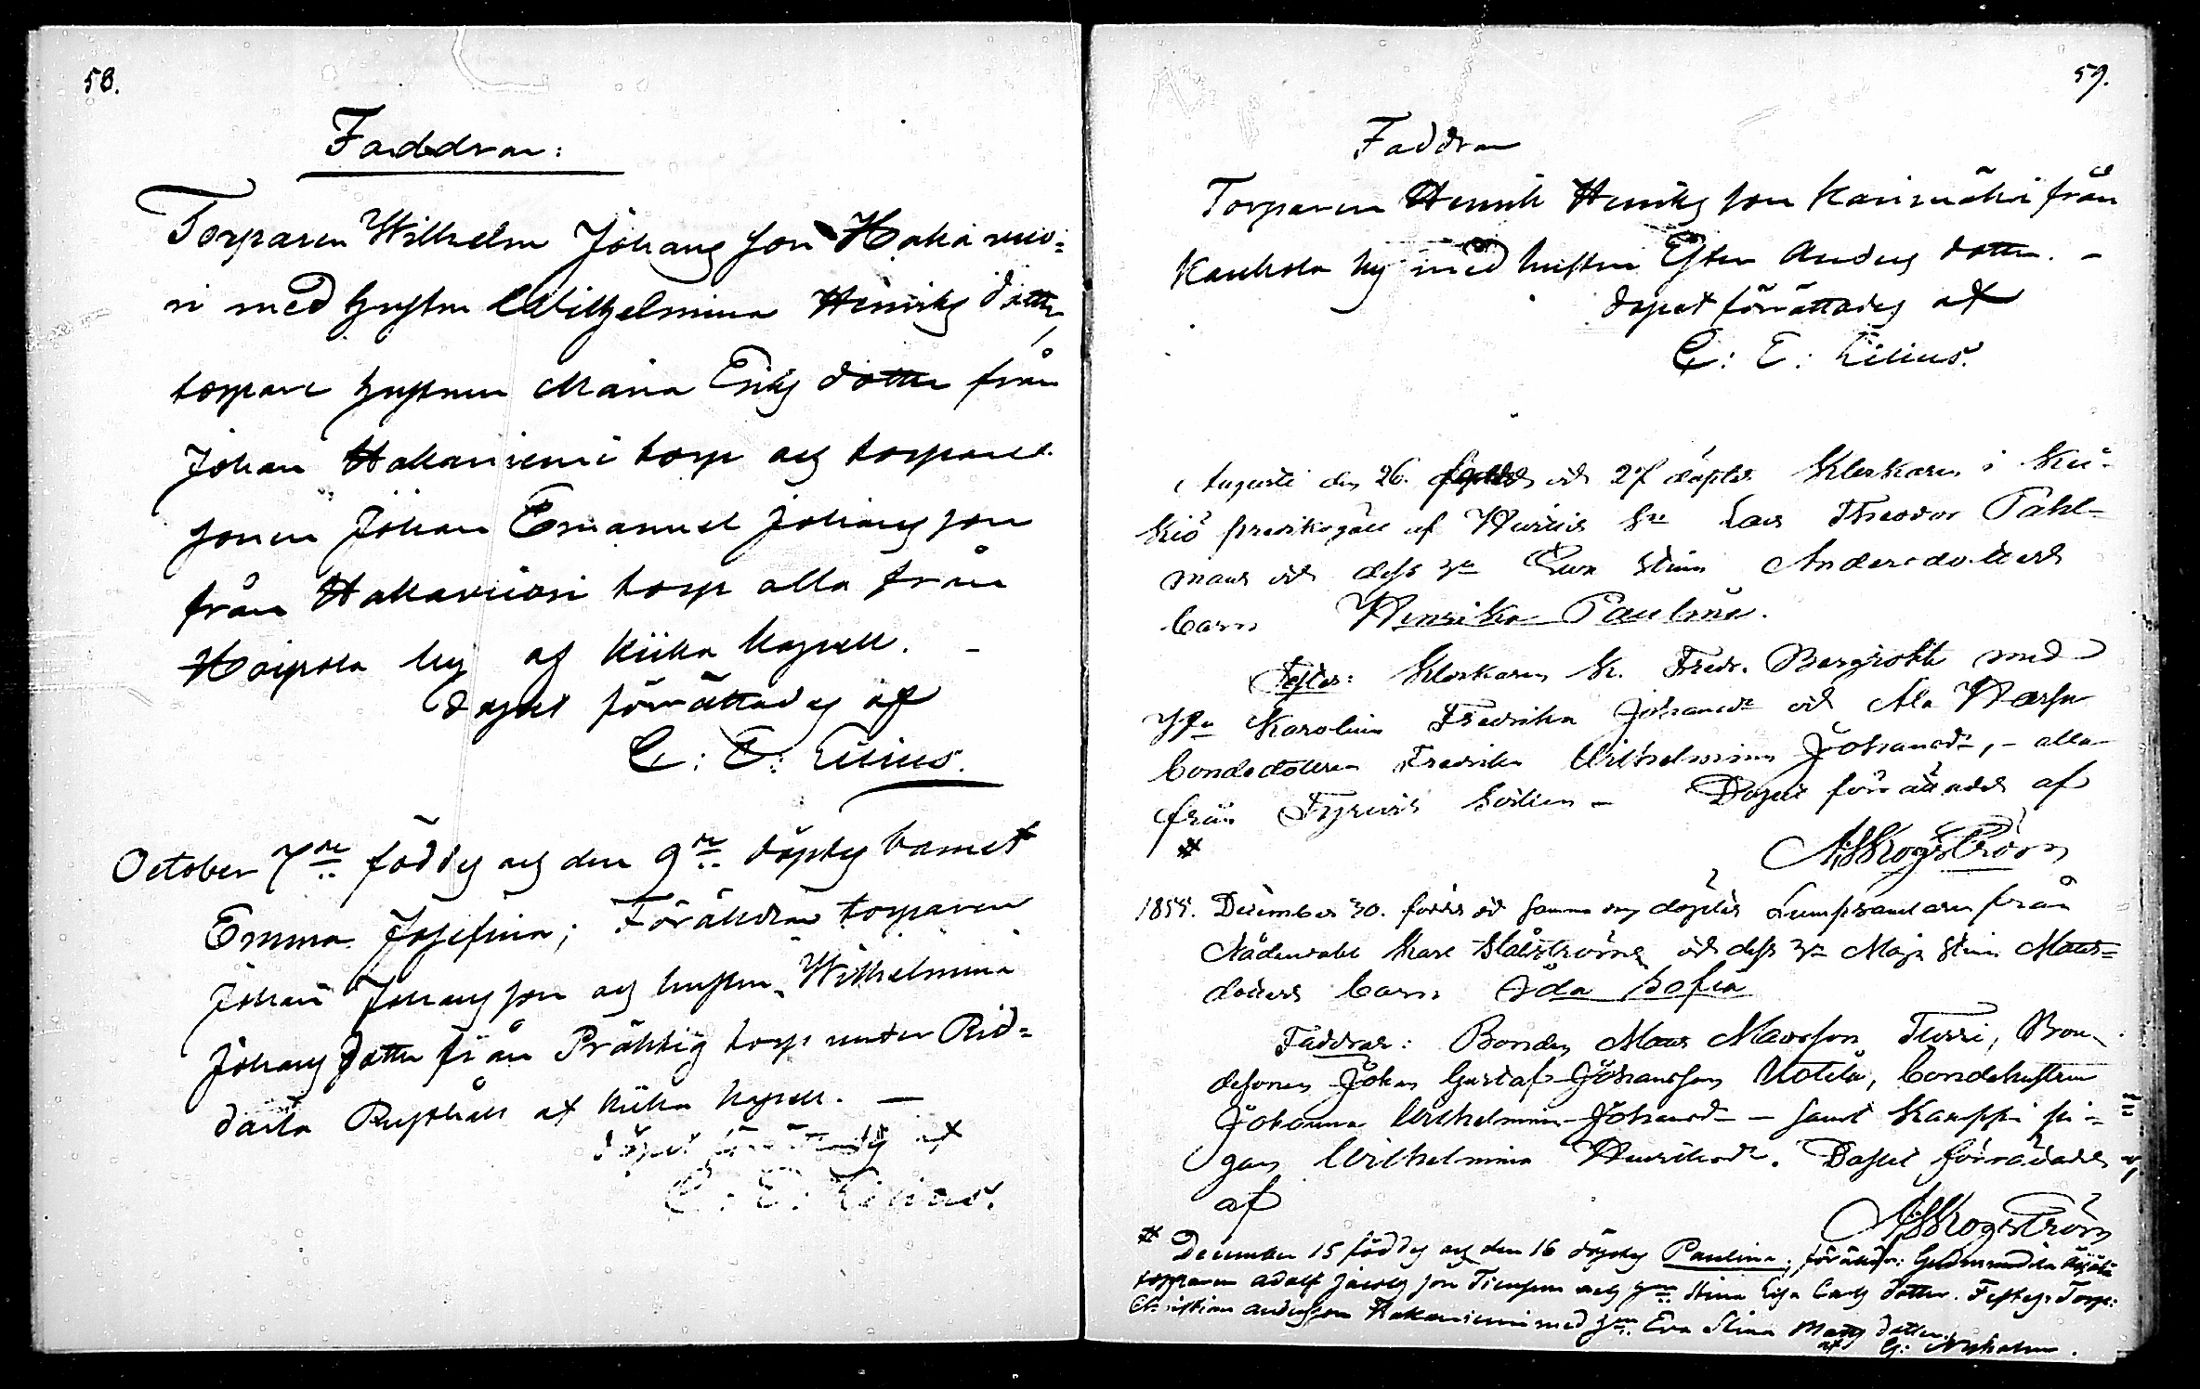 58.
Faddrar:
Torparen Wilhelm Johans son Hakavuo=
ri med hustru Wilhelmina Henriks dotter,
torpare hustrun Maria Eriks dotter från
Johan Hakaniemi torp och torpare
sonen Johan Emanuel Johans son
från Hakavuori torp alla från
Haipola by af Kiika kapell. –
Dopet förrättades af
C: E: Lilius.
October 7de föddes och den 9de döptes barnet
Emma Josefina; Föräldrar torparen
Johan Johans son och hustru Wilhelmina
Johans dotter från Präktig torp under Rid=
dala Rusthåll af Kiika kapell. —
döpet förrättades af
C: E: Lilius.
59.
Faddrar
Torparen Henrik Henriks son Karimäki från
Kaukola by med hustru Ester Anders dotter. –
dopet förrättades af
C: E: Lilius.
Augusti den 26. föddes och 27 döptes Klockaren i
af Lars Theodor Påhl=
mans och dess Eva Stina Andersdotters
barn Henrika Paulina.
Testes: Klockaren K. Fredr. Bergroth med
Hu Karolina Fredrika Johansdr och Ala
bondedottren Fredrika Wilhelmina Johansdr, – alla
från Tyrvis Socken – Dopet förrättades af
# A Skogström
1855. December 30. föddes och samma dag döptes Lumpsamlaren från
Nådendal Karl Stålström och dess Maja Stina Mats=
dotters barn Ida Sofia
Faddrar: Bonden Mats Matsson Turri, Bon-
desonen Johan Gustaf Johansson Uotila, bondehustrun
Johanna Wilhelmina Johansdr – samt Kamppi pi-
gan Wilhelmina Henriksdr. Dopet förrättades
af
A Skogström
# December 15 föddes och den 16 döptes Paulina; föräldr:
torparen Adolf Jacobs son och Stina Caisa Carls dotter. Testes: Torp:
Christian Andersson Hakaniemi med Eva Stina Matts dotter.
af G: Nyholm.